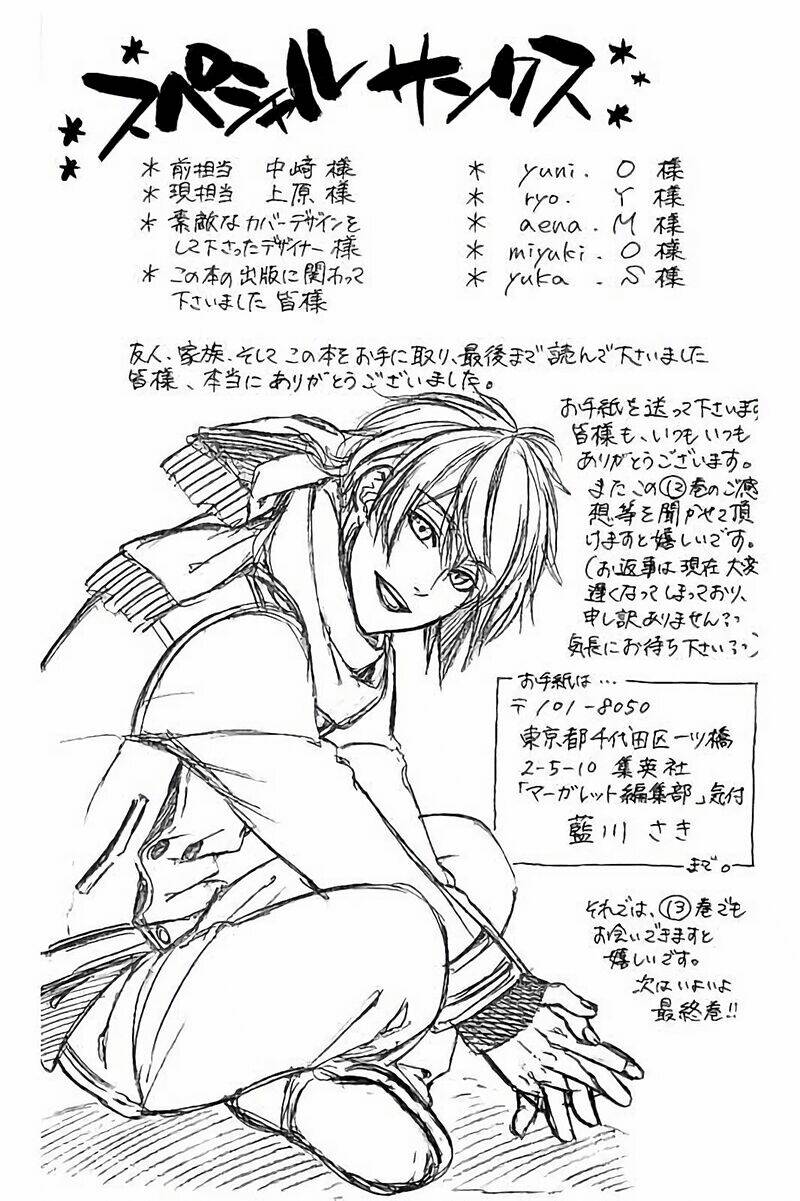 スペシャルサンクス
* 前担当 中崎様
* 現担当 上原様
* 素敵なカバーデザインを
して下さったデザイナー様
* この本の出版に関わって
下さいました皆様
* yuni. O 様
* ryo. Y 様
* aena. M 様
* miyuki. O 様
* yuka. S 様
友人、家族、そしてこの本をお手に取り、最後まで読んで下さいました
皆様、本当にありがとうございました。
お手紙を送って下さいます
皆様も、いつもいつも
ありがとうございます。
またこの⑫巻のご感
想等を聞かせて頂
けますと嬉しいです。
(お返事は現在大変
遅くなってしまっており、
申し訳ありません
気長にお待ち下さい
お手紙は…
〒101-8050
東京都千代田区一ツ橋
2-5-10 集英社
「マーガレット編集部」気付
藍川さき
まで。
それでは、⑬巻でも
お会いできますと
嬉しいです。
次はいよいよ
最終巻!!